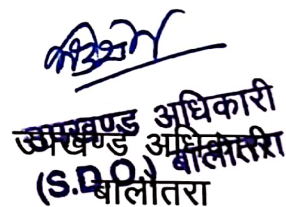 उपखण्ड अधिकारी
उपखण्ड अधिकारी
(S.D.O.) बालोतरा
बालोतरा